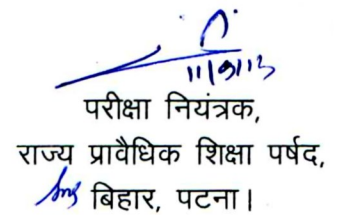 11/9/13
परीक्षा नियंत्रक,
राज्य प्रावैधिक शिक्षा पर्षद,
बिहार, पटना।